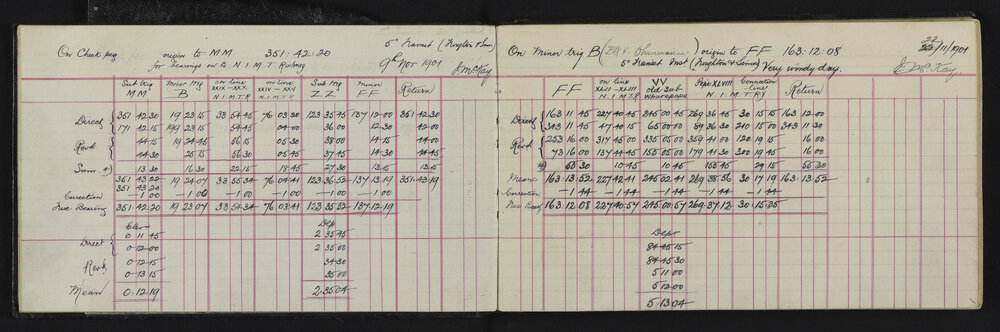 On Check peg origin to MM 351:42:20 5" Transit (Troughton & Simms)
for bearings on to N.I.M.T. Railway 9th Nov 1901 J. McKay
Sub trig MM Minor Trig B on line XXIX - XXX N.I.M.T.R on line XXIV - XXV N.I.M.T.R Sub Trig ZZ' Minor FF Return
Direct 351 42.30 19 23.15 33 54.45 76 03.30 123 35.45 137 12.00 351 42.30
171 42.15 199 23.15 54.45 04.00 36.00 12.30 42.00
Revd 44.15 19 24.45 56.15 05.30 38.00 14.15 44.00
44.30 25.15 56.30 05.45 37.45 14.30 44.45
Sum 13.30 16.30 22.15 18.45 27.30 13.15 13.15
351 43.22 19 24.07 33 55.34 76 04.41 123 36.52 137 13.19 351.43.19
351 43.20
Correction - 1.00 - 1.00 - 1.00 - 1.00 - 1.00 - 1.00
True Bearing 351.42.20 19 23.07 33 54.34 76.03.41 123 35.52 137.12.19
Elev Dep
Direct 0 11 45 2 35.45
0.12.00 2 35.00
Revd 0.12.15 34.30
0.13.15 35.00
Mean 0.12.19 2.35.04
On Minor trig B origin to FF 163:12:08 22/11/1901
5" Transit Inst (Troughton & Simms) Very windy day. J. McKay
FF on line XXII - XXIII N.I.M.T.R VV old Sub Wharepapa Pegs XLVIII N.I.M.T.R Connection line Return
Direct 163.11.45 227 40.45 245 00.45 269 36.45 30 15.15 163 12.00
343 11.45 47 40.15 65 00.00 89 36.30 210 15.00 343 11.30
Revd 253 16.00 317 45.00 335 05.00 359 41.00 120 19.15 16.00
73 16.00 137 44.45 155 05.00 179 41.30 300 19.45 16.00
4) 55.30 10.45 10.45 155.45 29.15 55.30
Mean 163.13.52 227.42.41 245 02.41 269 38.56 30 17.19 163.13.52
Correction - 1.44 - 1.44 - 1.44 - 1.44 - 1.44
True Bearg 163.12.08 227.40.57 245.00.57 269.37.12 30.15.35
Depr
84 45 15
84 45 30
5 11 00
5 12 00
5.13.04